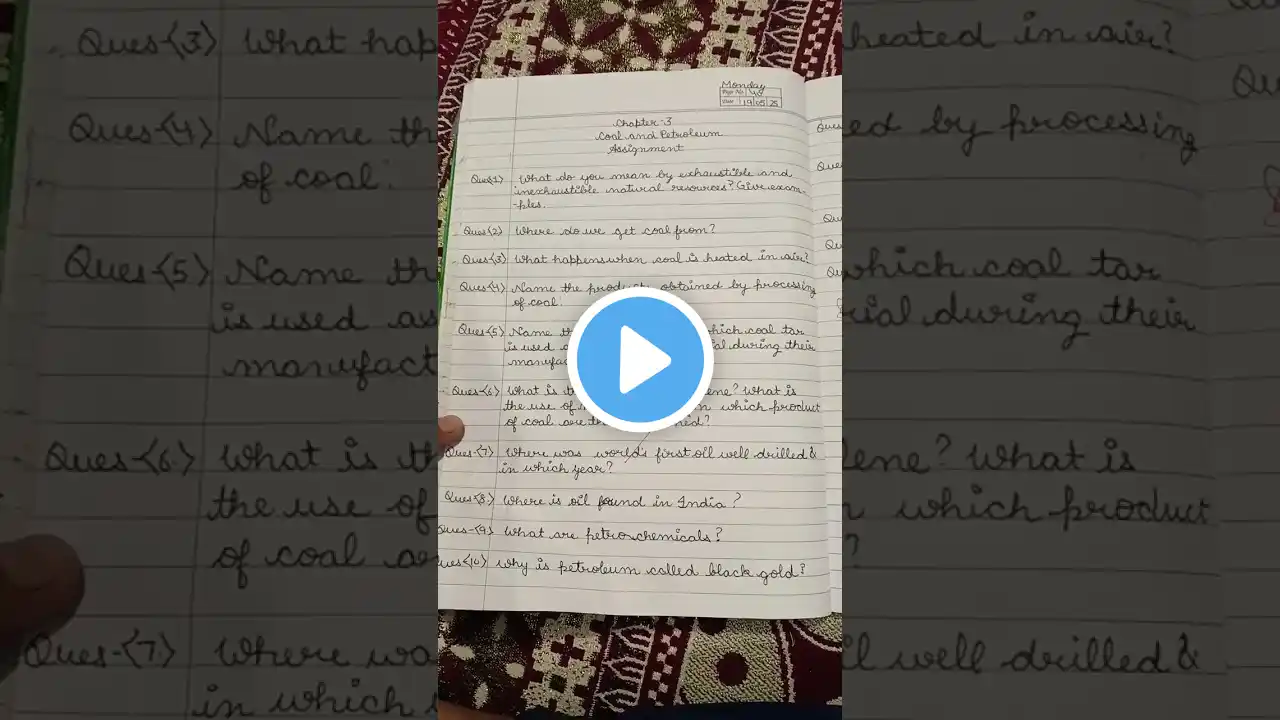 Monday
Page No. 48
Date 19 05 25
Chapter-3
Coal and Petroleum
Assignment
Ques<1> What do you mean by exhaustible and
inexhaustible natural resources? Give exam-
-ples.
Ques<2> Where do we get coal from?
Ques<3> What happens when coal is heated in air?
Ques<4> Name the products obtained by processing
of coal.
Ques<5> Name which coal tar
is used during their
Ques-<6> What is What is
the use of which product
of coal are
Ques-<7> Where was world's first oil well drilled &
in which year?
Ques<8> Where is oil found in India?
Ques-<9> What are petrochemicals?
Ques<10> Why is petroleum called black gold?